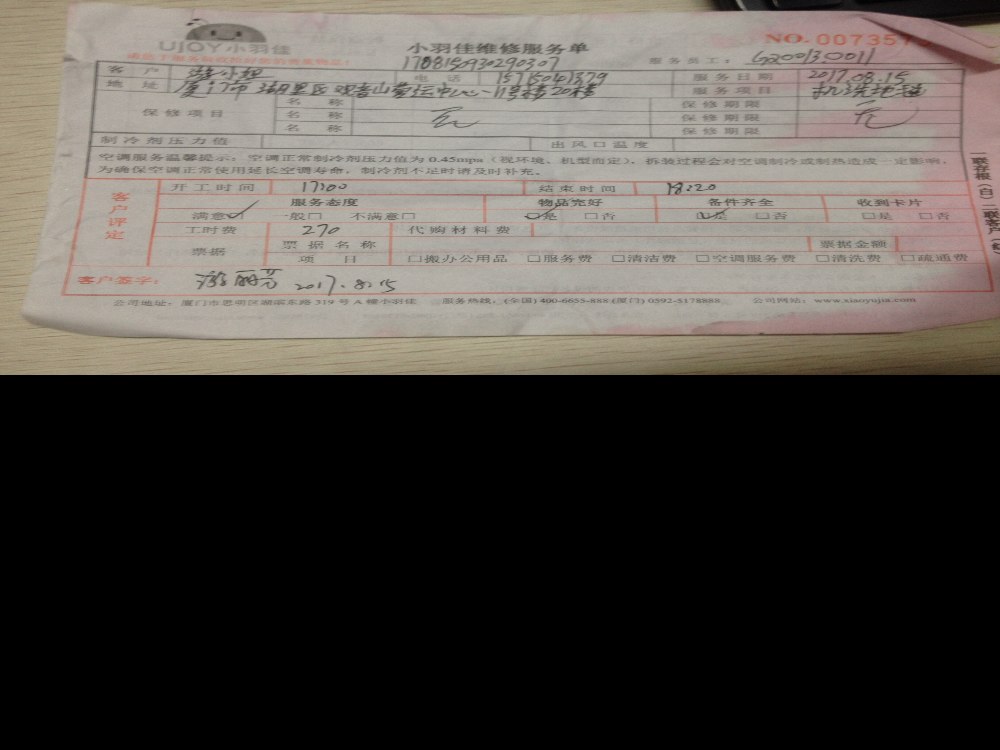 UJOY小羽佳
小羽佳维修服务单
NO. 00735
1708150930290307
服务员工: G200130011
客户 游小姐 电话 15715041379 服务日期 2017.08.15
地址 厦门市湖里区观音山营运中心-11号楼20楼 服务项目 机洗地毯
保修项目 名称 无 保修期限 无
名称 保修期限
名称 保修期限
制冷剂压力值 出风口温度
空调服务温馨提示:空调正常制冷剂压力值为0.45mpa(视环境、机型而定),拆装过程会对空调制冷或制热造成一定影响,
为确保空调正常使用延长空调寿命,制冷剂不足时请及时补充。
客户评定
开工时间 17:00 结束时间 18:20
服务态度 物品完好 备件齐全 收到卡片
满意☑ 一般□ 不满意□ ☑是 □否 ☑是 □否 □是 □否
工时费 270 代购材料费
票据 票据名称 票据金额
项目 □搬办公用品 □服务费 □清洁费 □空调服务费 □清洗费 □疏通费
客户签字: 游丽芳 2017.8.15
服务热线:(全国)400-6655-888 (厦门) 0592-5178888 公司网站:www.xiaoyujia.com